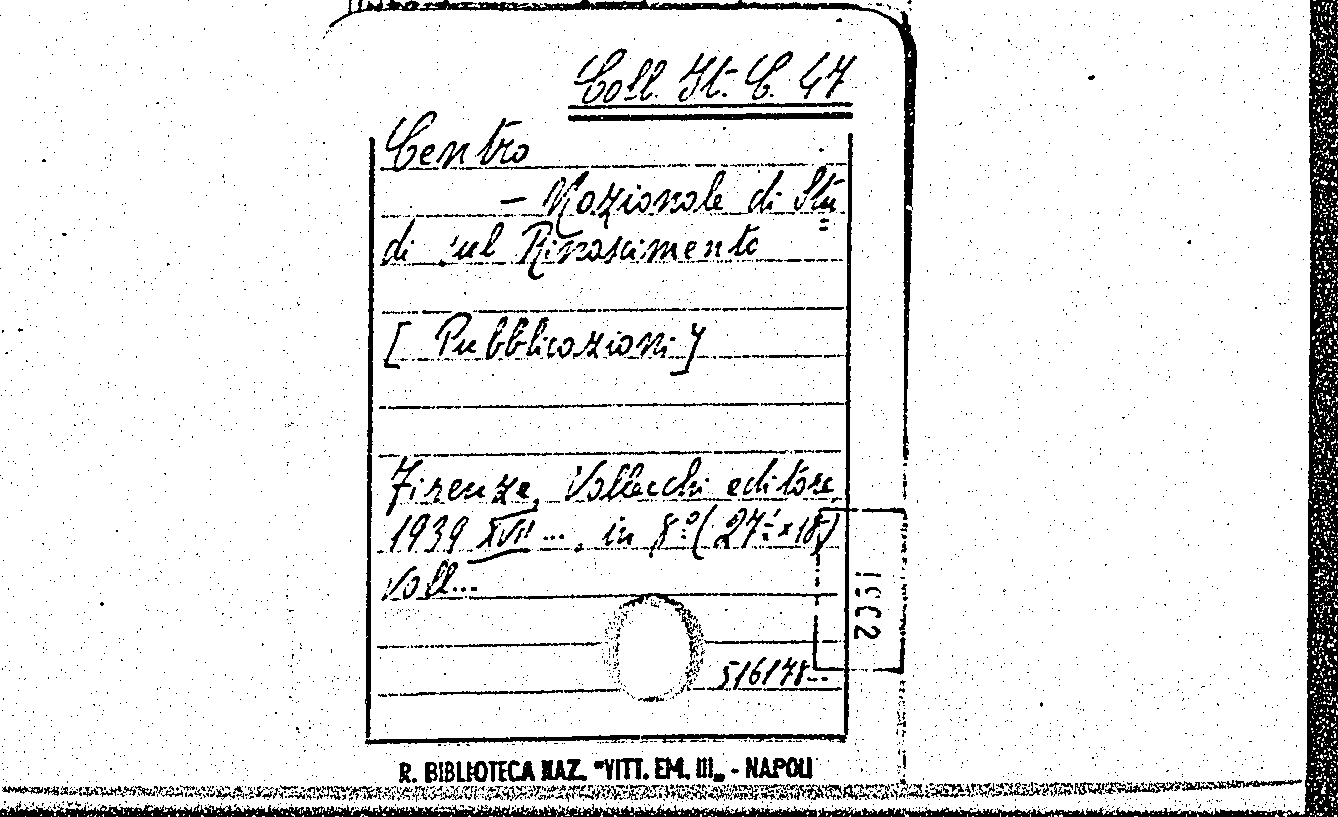 Coll. It. C. 47
Centro
- Nazionale di Stu
di sul Rinascimento
[Pubblicazioni]
Firenze, Vallecchi editore
1939 XVII ..., in 8.º (27½ x 18)
Voll...
516178...
R. BIBLIOTECA NAZ. "VITT. EM. III„ - NAPOLI